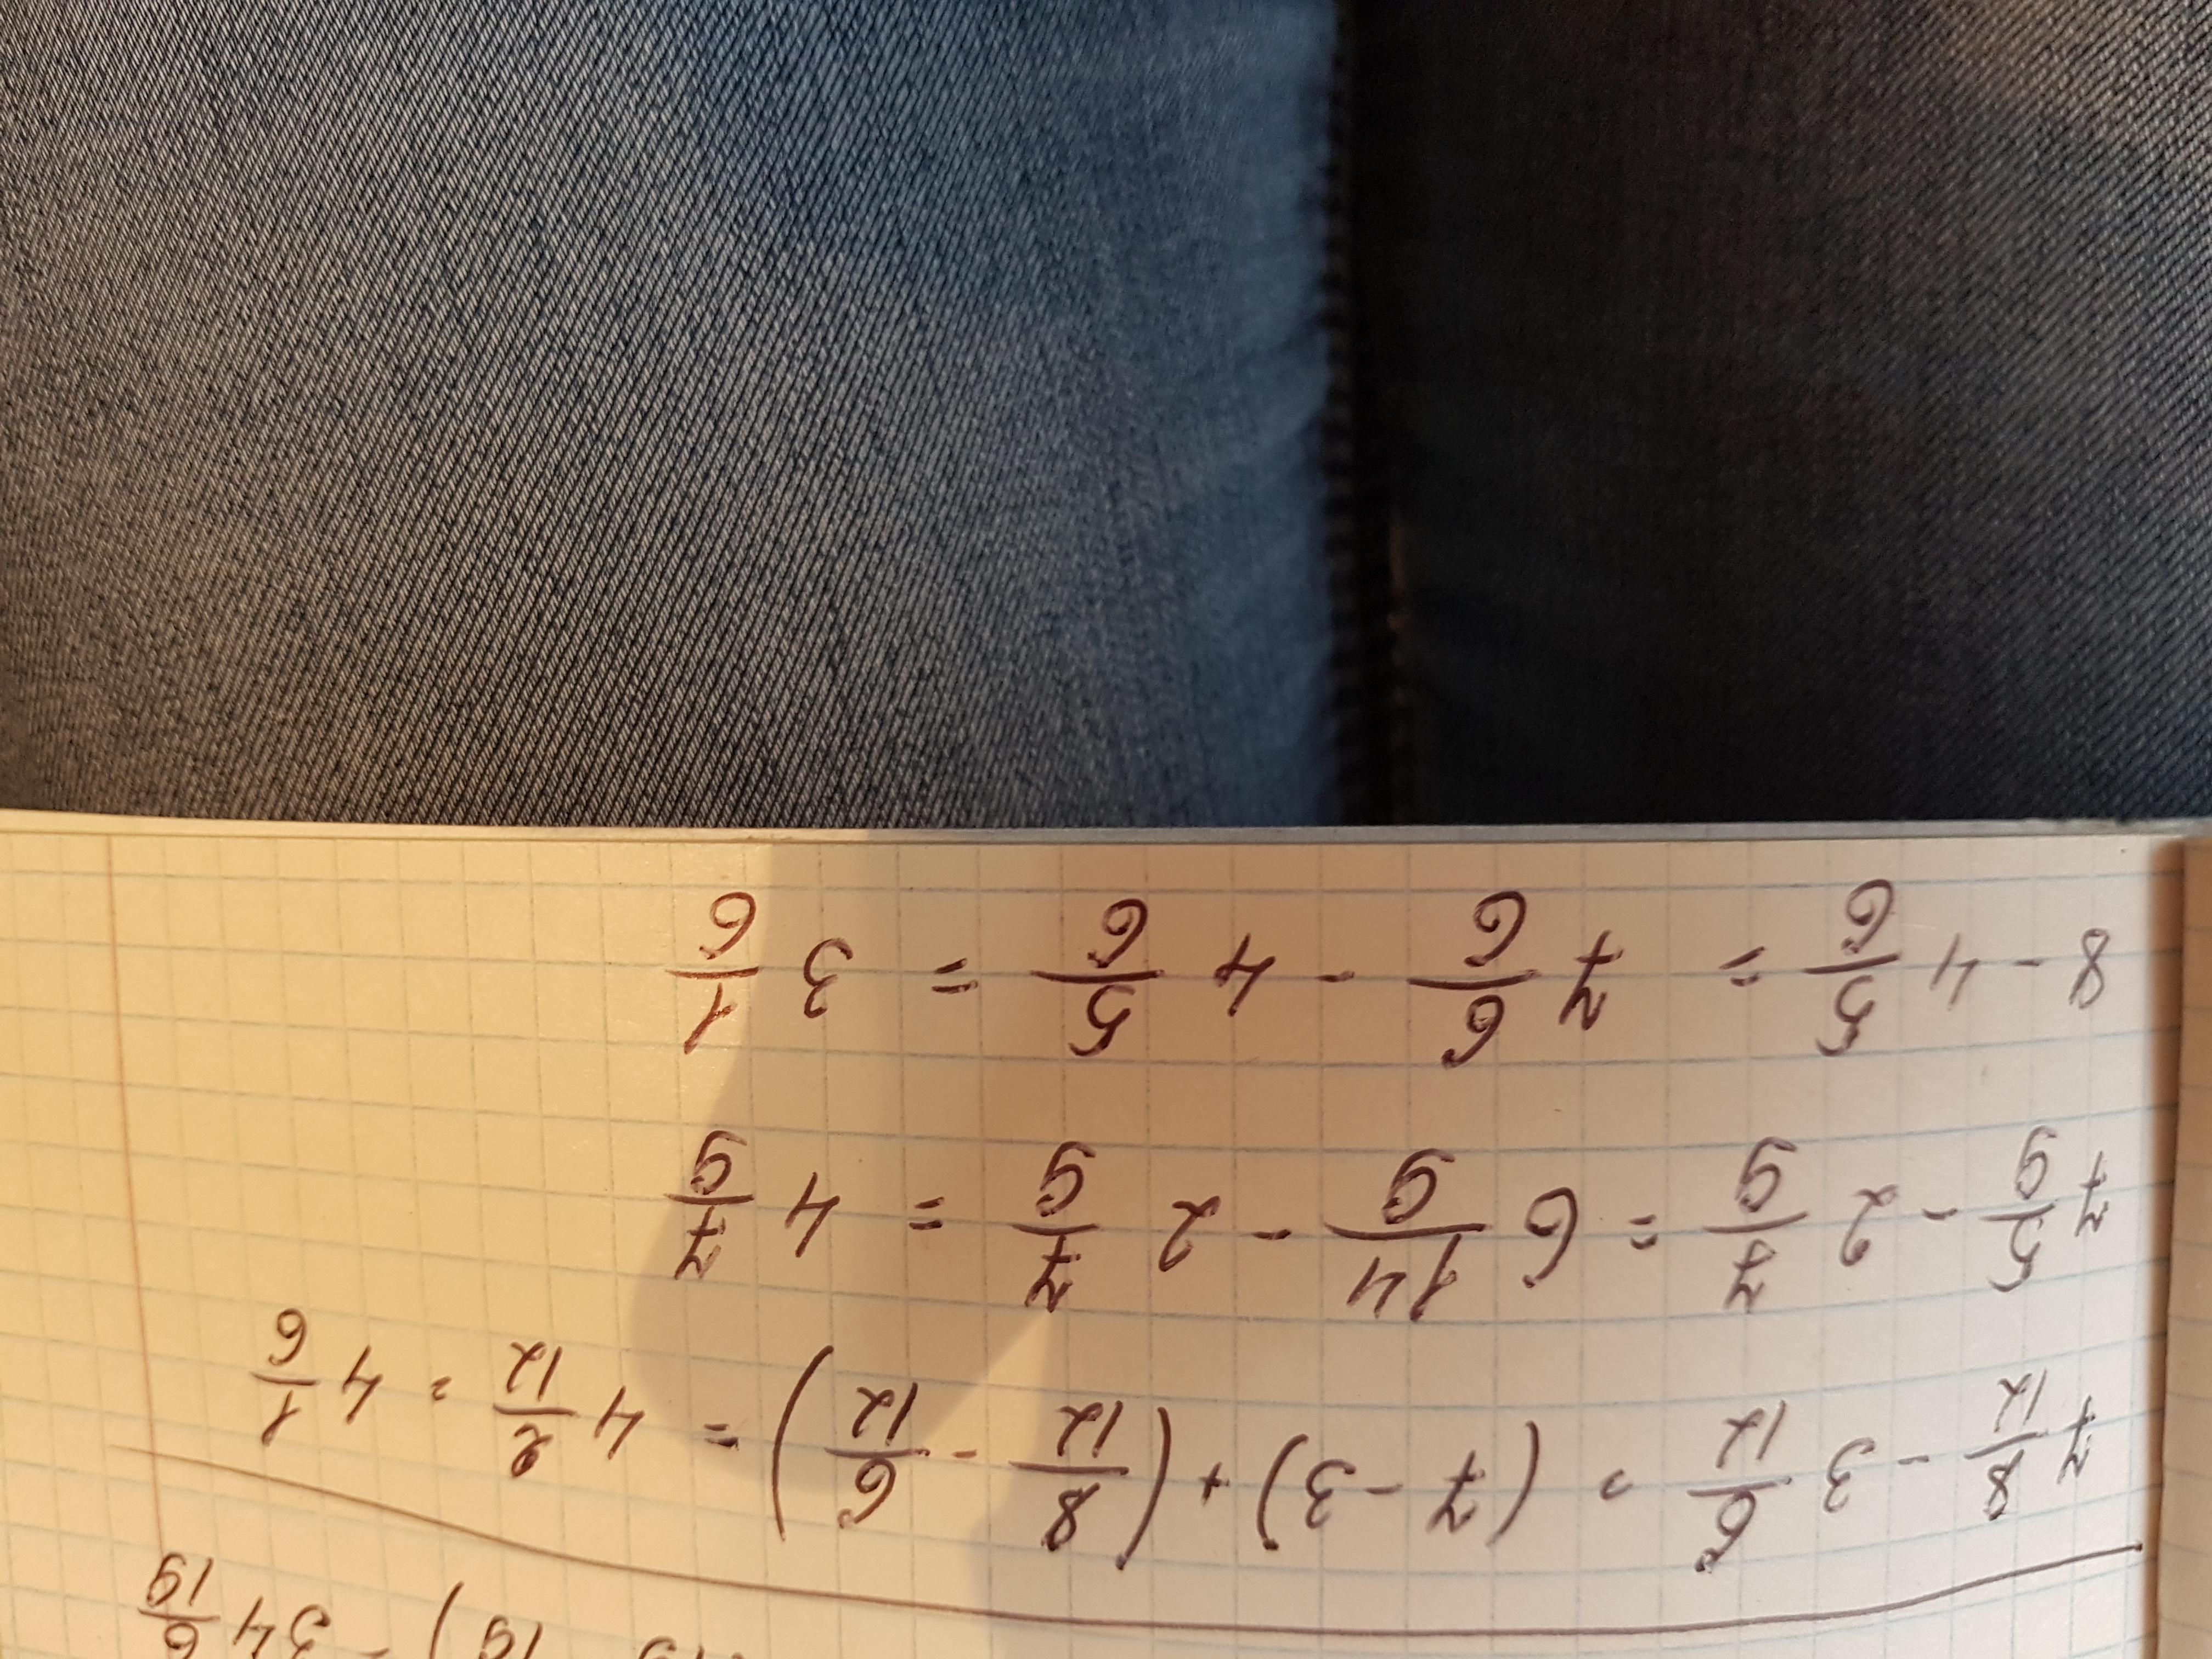 19) = 34 6/19
7 8/12 - 3 6/12 = (7 - 3) + (8/12 - 6/12) = 4 2/12 = 4 1/6
7 5/9 - 2 7/9 = 6 14/9 - 2 7/9 = 4 7/9
8 - 4 5/6 = 7 6/6 - 4 5/6 = 3 1/6